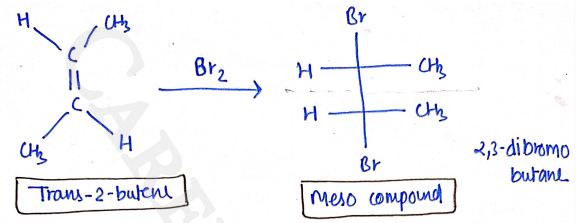 H
CH3
C
C
CH3
H
Trans-2-butene
Br2
Br
H
CH3
H
CH3
Br
Meso compound
2,3-dibromo
butane